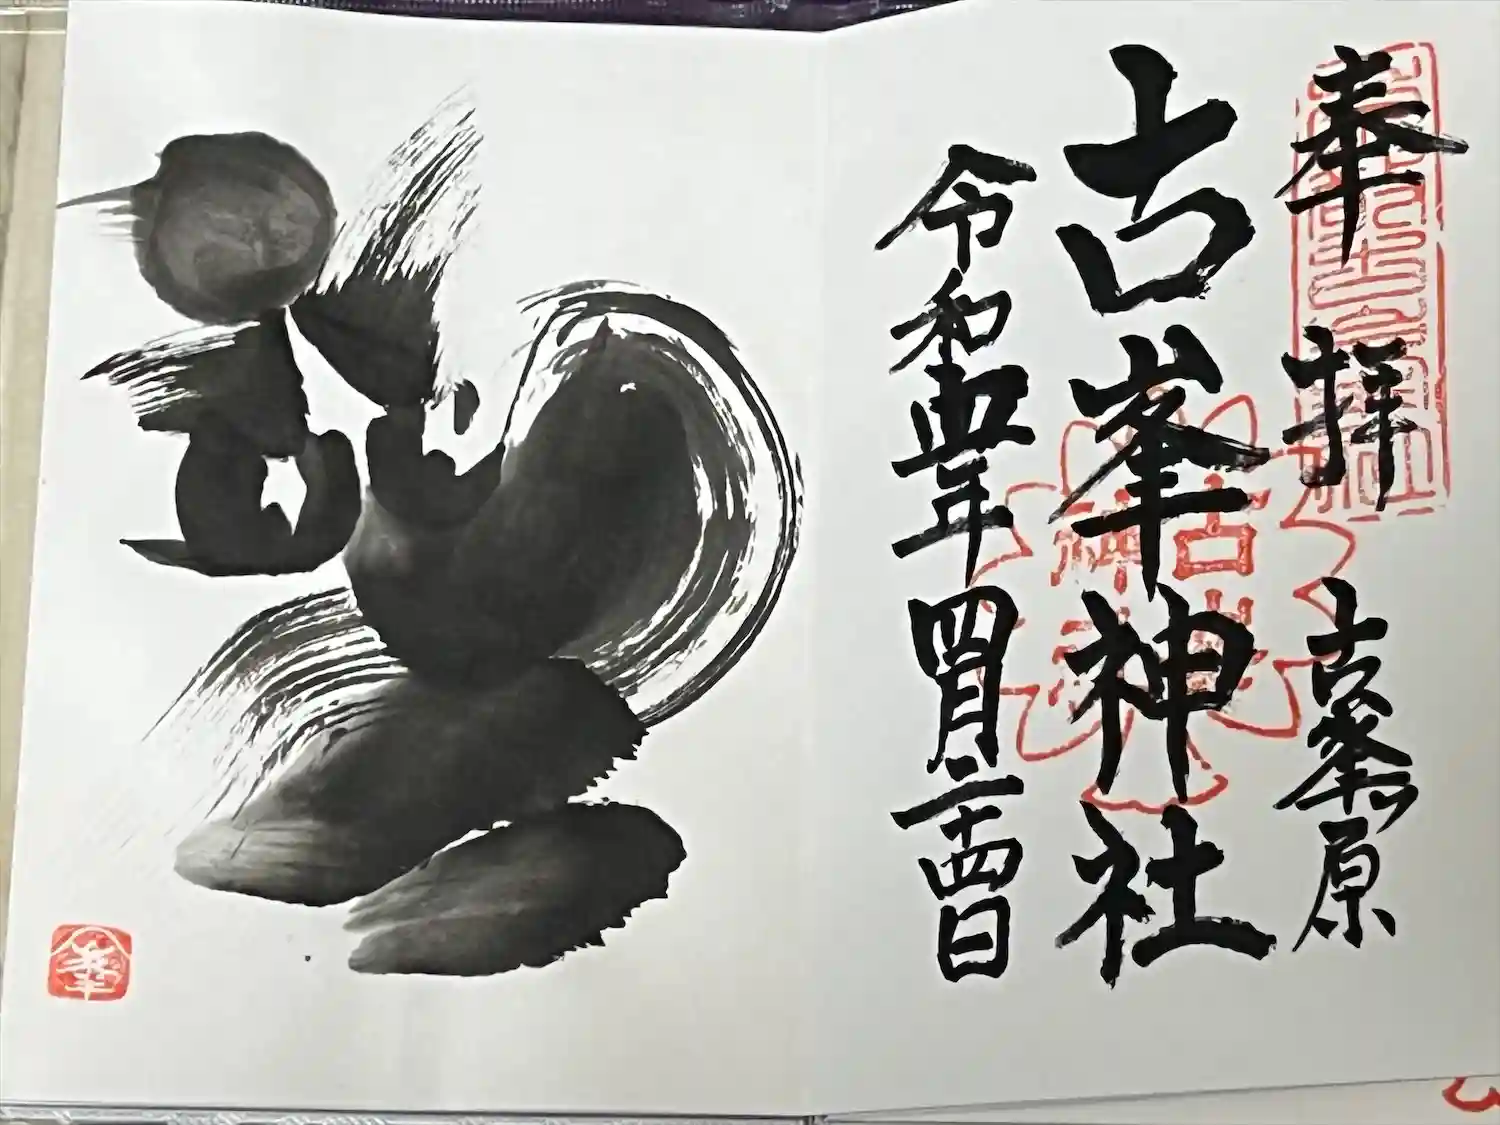 奉拝 古峯ヶ原
古峯神社
令和四年四月二十四日
古峯
神社
峯